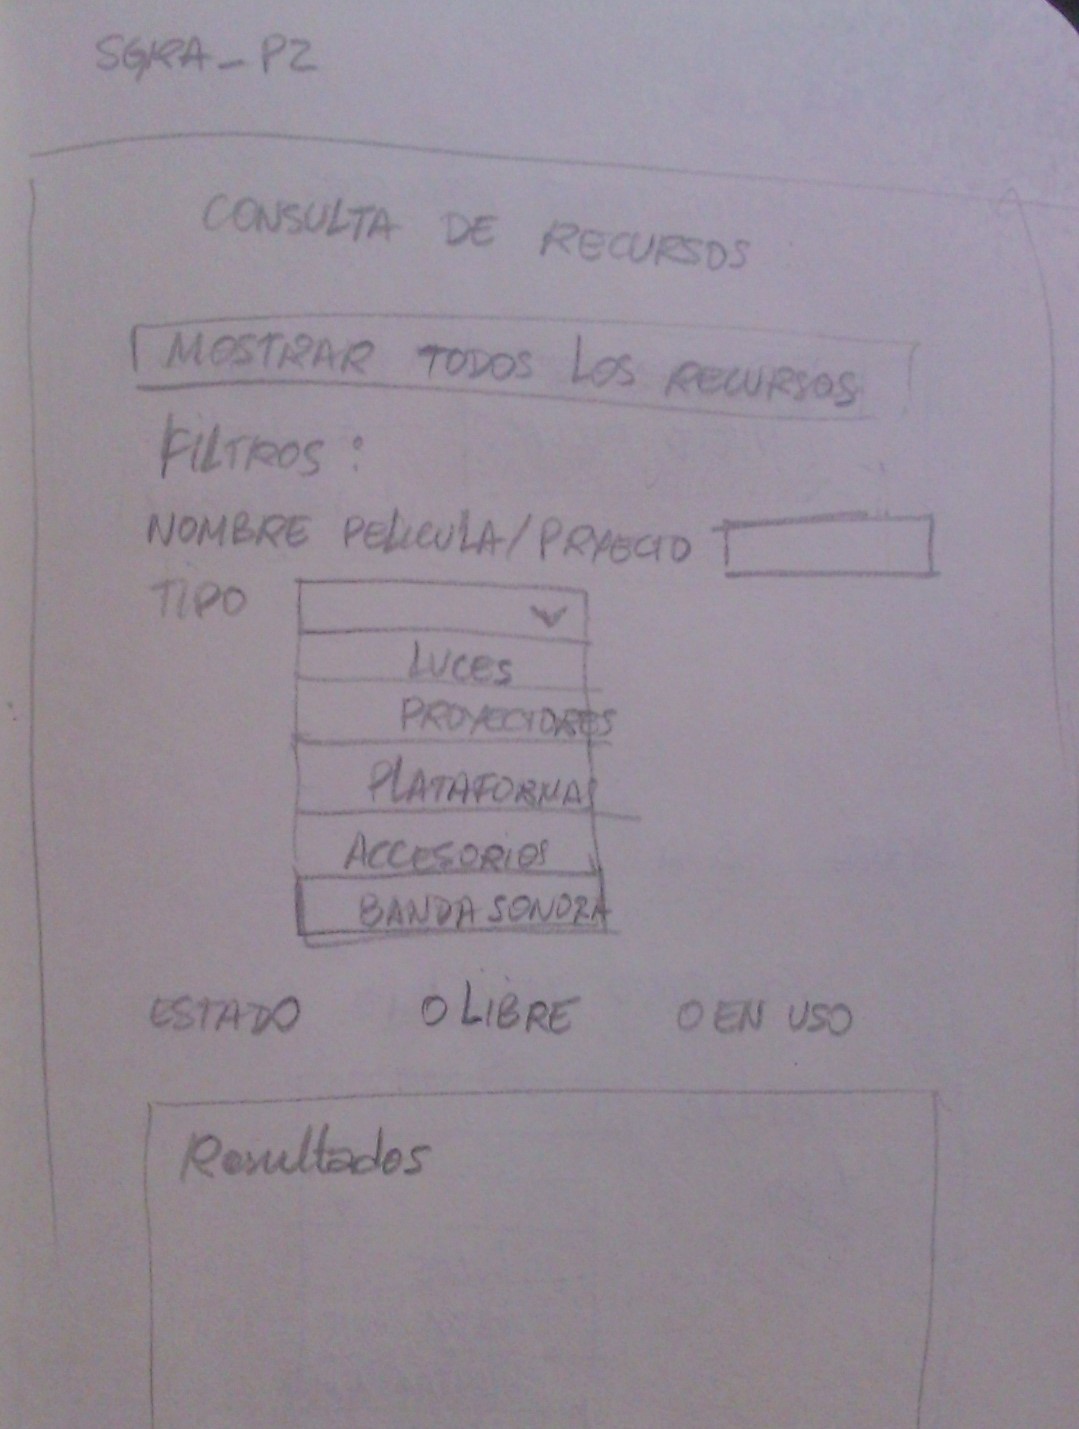 SGRA_P2
CONSULTA DE RECURSOS
MOSTRAR TODOS LOS RECURSOS
FILTROS :
NOMBRE PELICULA/PRYECTO
TIPO
LUCES
PROYECTORES
PLATAFORMAS
ACCESORIOS
BANDA SONORA
ESTADO O LIBRE O EN USO
Resultados